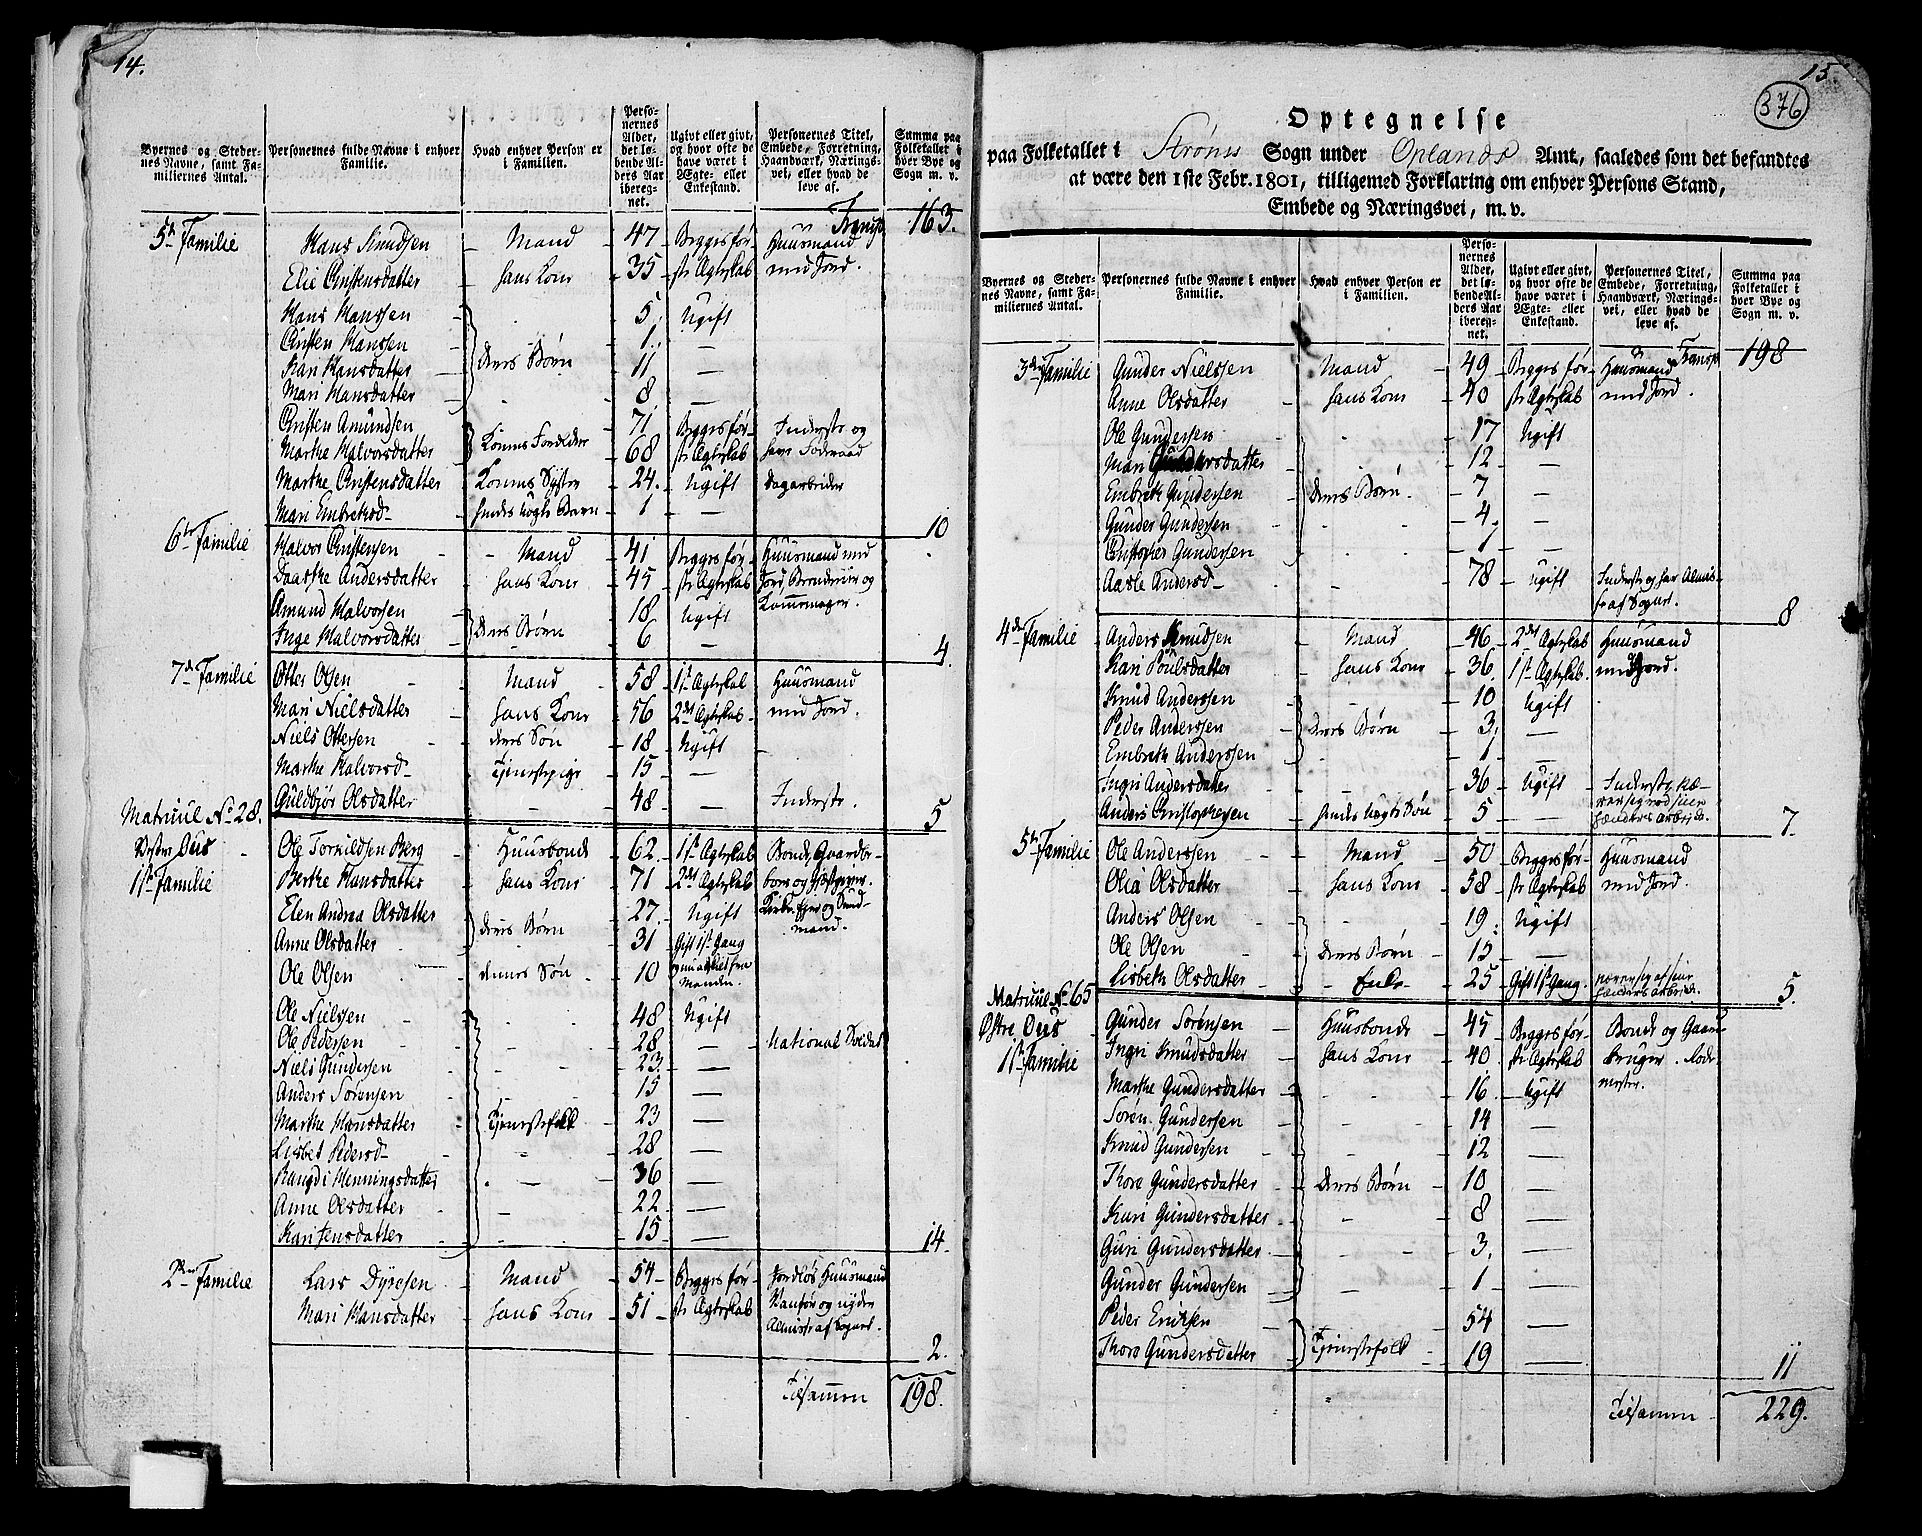 14.
Byernes og Steder-
nes Navne, samt Fa-
miliernes Antal.
Personernes fulde Navne i enhver
Familie.
Hvad enhver Person er
i Familien.
Perso-
nernes
Alder,
det lø-
bende Al-
ders Aar
iberegnet.
Ugivt eller givt,
og hvor ofte de
have været i
Ægte- eller
Enkestand.
Personernes Titel,
Embede, Forretning,
Haandværk, Nærings-
vei, eller hvad de
leve af.
Summa paa
Folketallet i
hver Bye og
Sogn m. v.
Transp 163.
5te Familie Hans Knudsen Mand 47 Begges før- Huusmand
Elie Christensdatter hans Kone 35 ste Ægteskab med Jord.
Hans Hanssen 5 Ugift
Christen Hanssen 1 —
Kari Hansdatter deres Børn 11 —
Mari Hansdatter 8 —
Christen Amundsen 71 Begges før- Inderste og
Marthe Halvorsdatter Konens Forældre 68 ste Ægteskab har Føderaad
Marthe Christensdatter Konens Syster 24. Ugift Dagarbeider
Mari Embretsd- hendes uægte Barn 1 —
10
6te Familie Halvor Christensen Mand 41 Begges før- Huusmand med
Andersdatter hans Kone 45 ste Ægteskab Jord og
Amund Halvorsen 18 Ugift
Inge Halvorsdatter deres Børn 6 —
4.
7de Familie Otter Olsen Mand 58 1ste Ægteskab Huusmand
Mari Nielsdatter hans Kone 56 2det Ægteskab med Jord.
Niels Ottersen deres Søn 18 Ugift
Marthe Halvorsd- Tjenestepige 15 —
Guldbjør Olsdatter 48 — Inderste.
5
Matruul No 28.
Vestre Ous Ole Torkildsen Berg Huusbonde 62 1ste Ægteskab Bonde, Gaardbe-
1ste Familie Berthe Hansdatter hans Kone 71 2det Ægteskab boer og Giæstgiver.
Elen Andrea Olsdatter 27 Ugift Kirke Eyer og
Anne Olsdatter deres Børn 31 Gift 1ste Gang mand.
Ole Olsen dennes Søn 10 Manden.
Ole Nielsen 48 Ugift
Ole Pedersen 28 — National Soldat
Niels Gundersen 23. —
Anders Sørensen 15 —
Marthe Hansdatter Tjenestefolk 23 —
Lisbet Pedersd- 28 —
Rangdi Henningsdatter 36 —
Anne Olsdatter 22 —
Kari Jensdatter 15 —
14.
2den Familie Lars Dyresen Mand 54 Begges før- Jordløs Huusmand
Mari Hansdatter hans Kone 51 ste Ægteskab Vanfør og nyder
Almisse af Sognet.
2.
Tilsammen 198.
15.
376
Optegnelse
paa Folketallet i Strøms Sogn under Oplands Amt, saaledes som det befandtes
at være den 1ste Febr. 1801, tilligemed Forklaring om enhver Persons Stand,
Embede og Næringsvei, m. v.
Byernes og Steder-
nes Navne, samt Fa-
miliernes Antal.
Personernes fulde Navne i enhver
Familie.
Hvad enhver Person er
i Familien.
Perso-
nernes
Alder,
det lø-
bende Al-
ders Aar
ibereg-
net.
Ugivt eller givt,
og hvor ofte de
have været i
Ægte- eller
Enkestand.
Personernes Titel,
Embede, Forretning,
Haandværk, Nærings-
vei, eller hvad de
leve af.
Summa paa
Folketallet i
hver Bye og
Sogn m. v.
Transp 198
3die Familie Gunder Nielssen Mand 49 Begges før- Huusmand
Anne Olsdatter hans Kone 40 ste Ægteskab med Jord.
Ole Gundersen 17 Ugift
Mari Gundersdatter 12 —
Embreth Gundersen deres Børn 7 —
Gunder Gundersen 4. —
Christopher Gundersen 1 —
Aasle Andersd- 78 Ugift Inderste og har Almis-
se af Sognet.
8
4de Familie Anders Knudsen Mand 46 2det Ægteskab Huusmand
Kari Poulsdatter hans Kone 36. 1ste Ægteskab. med Jord.
Knud Anderssen 10 Ugift
Peder Anderssen deres Børn 3. —
Embreth Anderssen 1 —
Ingri Andersdatter 36 Ugift Inderste, næ-
Anders Christophersen hendes uægte Søn 5 — rer sig ved sine
Hænders Arbeide.
7.
5te Familie Ole Anderssen Mand 50 Begges før- Huusmand
Olia Olsdatter hans Kone 58 ste Ægteskab med Jord.
Anders Olsen 19 Ugift
Ole Olsen deres Børn 15 —
Lisbeth Olsdatter Enke 25 Gift 1ste Gang. nærer sig af sine
Hænders Arbeide.
5.
Matruul No 65
Østre Ous Gunder Sørensen Huusbonde 45 Begges før- Bonde og Gaard
1ste Familie Ingri Knudsdatter hans Kone 40 ste Ægteskab bruger. Lods-
Marthe Gundersdatter 16 Ugift mester.
Søren Gundersen 14 —
Knud Gundersen 12 —
Thore Gundersdatter deres Børn 10 —
Kari Gundersdatter 8 —
Guri Gundersdatter 3. —
Gunder Gundersen 1 —
Peder Erichsen 54 —
Thore Gundersdatter Tjenestefolk 19 —
11
Tilsammen 229.